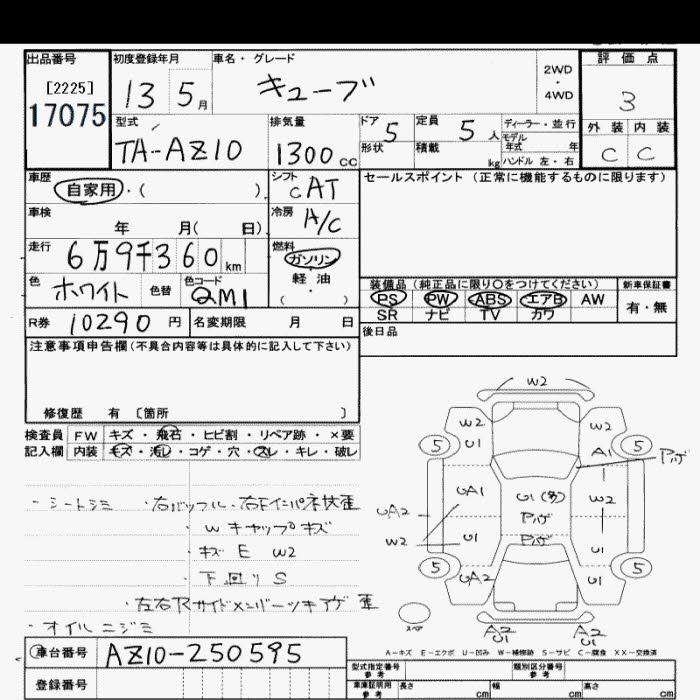 出品番号 初度登録年月 車名・グレード 2WD・4WD 評価点
[2225] 17075 13 5月 キューブ 3
型式 排気量 ドア 定員 ディーラー・並行 外装 内装
TA-AZ10 1300cc 5 5人 モデル年式 年 C C
形状 積載 kg ハンドル 左・右
車歴 自家用・( ) シフト cAT セールスポイント(正常に機能するものに限ります)
車検 年 月( 日) 冷房 A/C
走行 6万9千360km 燃料 ガソリン・軽油・( )
色 ホワイト 色替 色コード QM1
装備品(純正品に限り○をつけてください) 新車保証書
PS PW ABS エアB AW 有・無
SR ナビ TV カワ
R券 10290円 名変期限 月 日 後日品
注意事項申告欄(不具合内容等は具体的に記入して下さい)
修復歴 有 〔箇所 〕
検査員 FW キズ・飛石・ヒビ割・リペア跡・×要
記入欄 内装 キズ・汚れ・コゲ・穴・スレ・キレ・破レ
W2
W2 W2
5 U1 A1 5 Pハゲ
UA1 U1(多) W2
UA2 Pハゲ
W2 Pハゲ U1
5 UA2 U1 5
スペア
A2 U1 A2 U1
・シートシミ
・Wキャップキズ
・キズ E W2
・下回りS
・オイルニジミ
A--キズ E--エクボ U--凹み W--補修跡 S--サビ C--腐食 XX--交換済
車台番号 AZ10-250595
登録番号
型式指定番号 参考 類別区分番号 参考
車庫証明用 参考 長さ cm 幅 cm 高さ cm